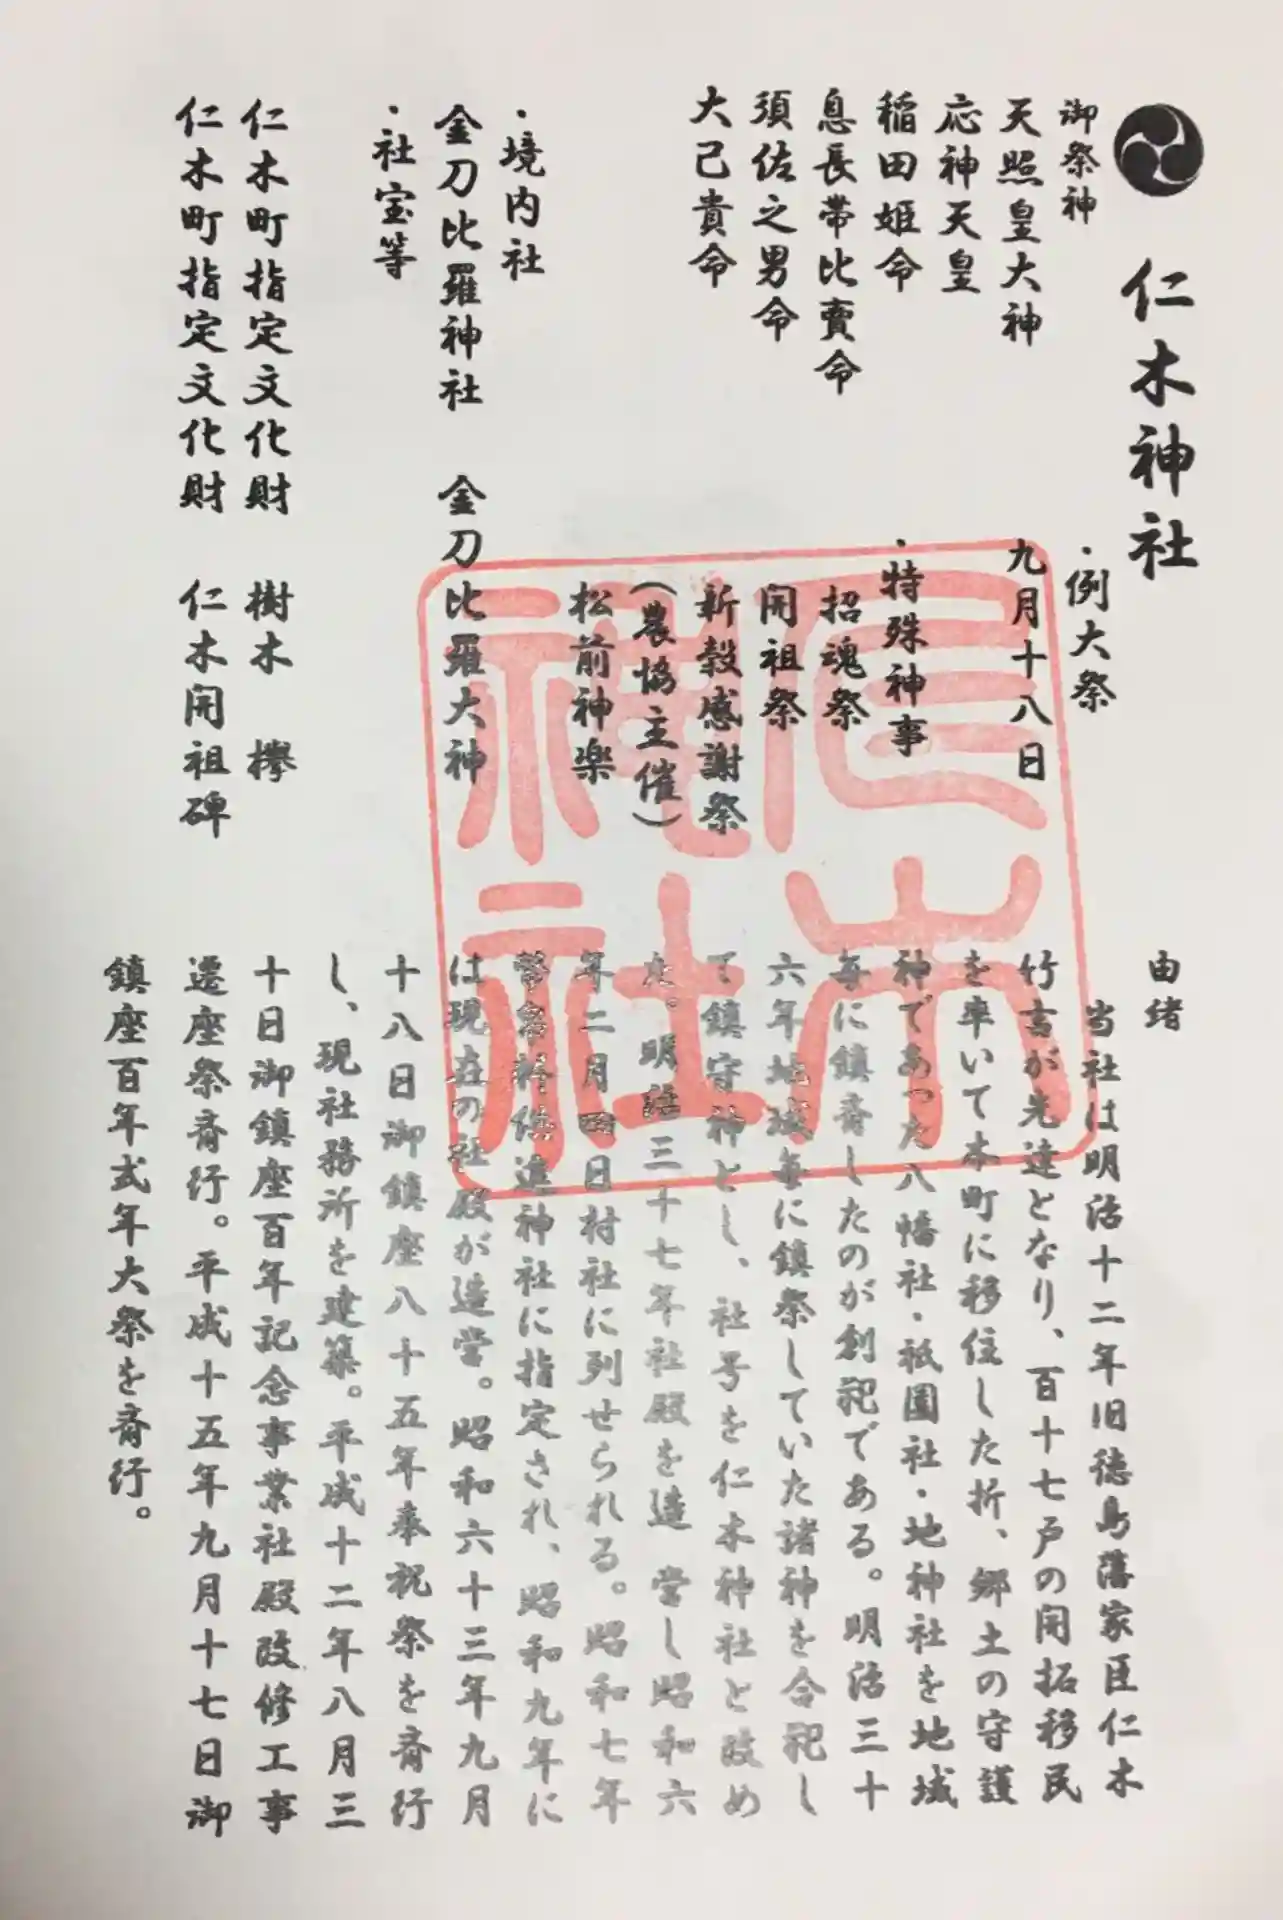 仁木神社
御祭神
天照皇大神
応神天皇
稲田姫命
息長帯比賣命
須佐之男命
大己貴命
・例大祭
九月十八日
・特殊神事
招魂祭
開祖祭
新穀感謝祭
(農協主催)
松前神楽
・境内社
金刀比羅神社 金刀比羅大神
・社宝等
仁木町指定文化財 樹木 欅
仁木町指定文化財 仁木開祖碑
由緒
当社は明治十二年旧徳島藩家臣仁木
竹吉が先達となり、百十七戸の開拓移民
を率いて本町に移住した折、郷土の守護
神であった八幡社・祇園社・地神社を地域
毎に鎮斎したのが創祀である。明治三十
六年地域毎に鎮祭していた諸神を合祀し
て鎮守神とし、社号を仁木神社と改め
た。明治三十七年社殿を造営し昭和六
年二月四日村社に列せられる。昭和七年
幣帛料供進神社に指定され、昭和九年に
は現在の社殿が造営。昭和六十三年九月
十八日御鎮座八十五年奉祝祭を斎行
し、現社務所を建築。平成十二年八月三
十日御鎮座百年記念事業社殿改修工事
遷座祭斎行。平成十五年九月十七日御
鎮座百年式年大祭を斎行。
仁木
神社